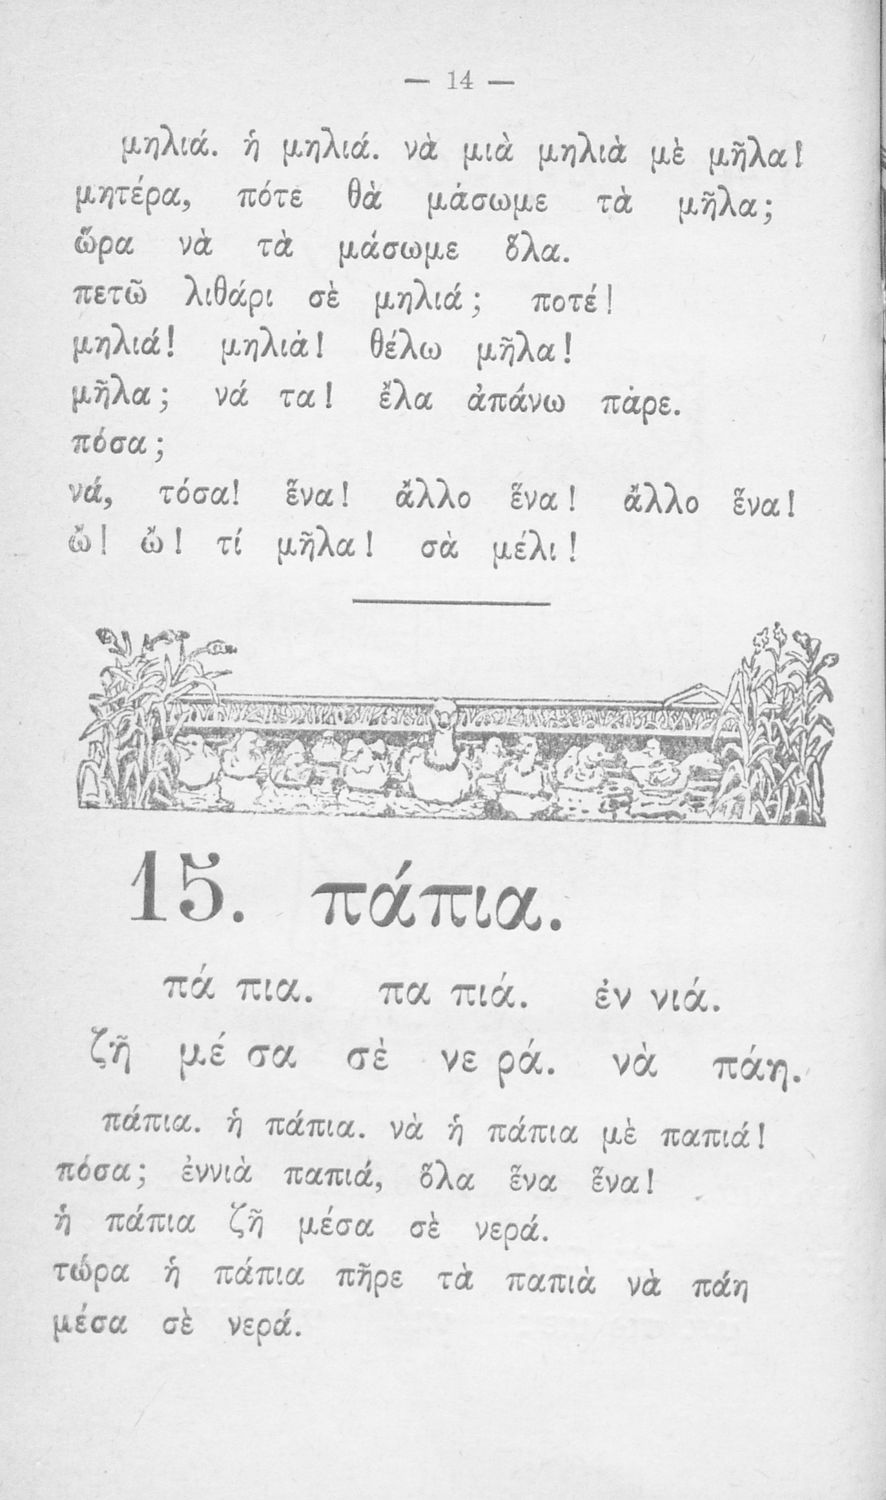 — 14 —
μηλιά. ἡ μηλιά. νὰ μιὰ μηλιὰ μὲ μῆλα!
μητέρα, πότε θὰ μάσωμε τὰ μῆλα;
ὥρα νὰ τὰ μάσωμε ὅλα.
πετῶ λιθάρι σὲ μηλιά; ποτέ!
μηλιά! μηλιά! θέλω μῆλα!
μῆλα; νά τα! ἔλα ἀπάνω πάρε.
πόσα;
νά, τόσα! ἕνα! ἄλλο ἕνα! ἄλλο ἕνα!
ὤ! ὤ! τί μῆλα! σὰ μέλι!
15. πάπια.
πά πια. πα πιά. ἐν νιά.
ζῆ μέ σα σὲ νε ρά. νὰ πάῃ.
πάπια. ἡ πάπια. νὰ ἡ πάπια μὲ παπιά!
πόσα; ἐννιὰ παπιά, ὅλα ἕνα ἕνα!
ἡ πάπια ζῆ μέσα σὲ νερά.
τώρα ἡ πάπια πῆρε τὰ παπιὰ νὰ πάῃ
μέσα σὲ νερά.